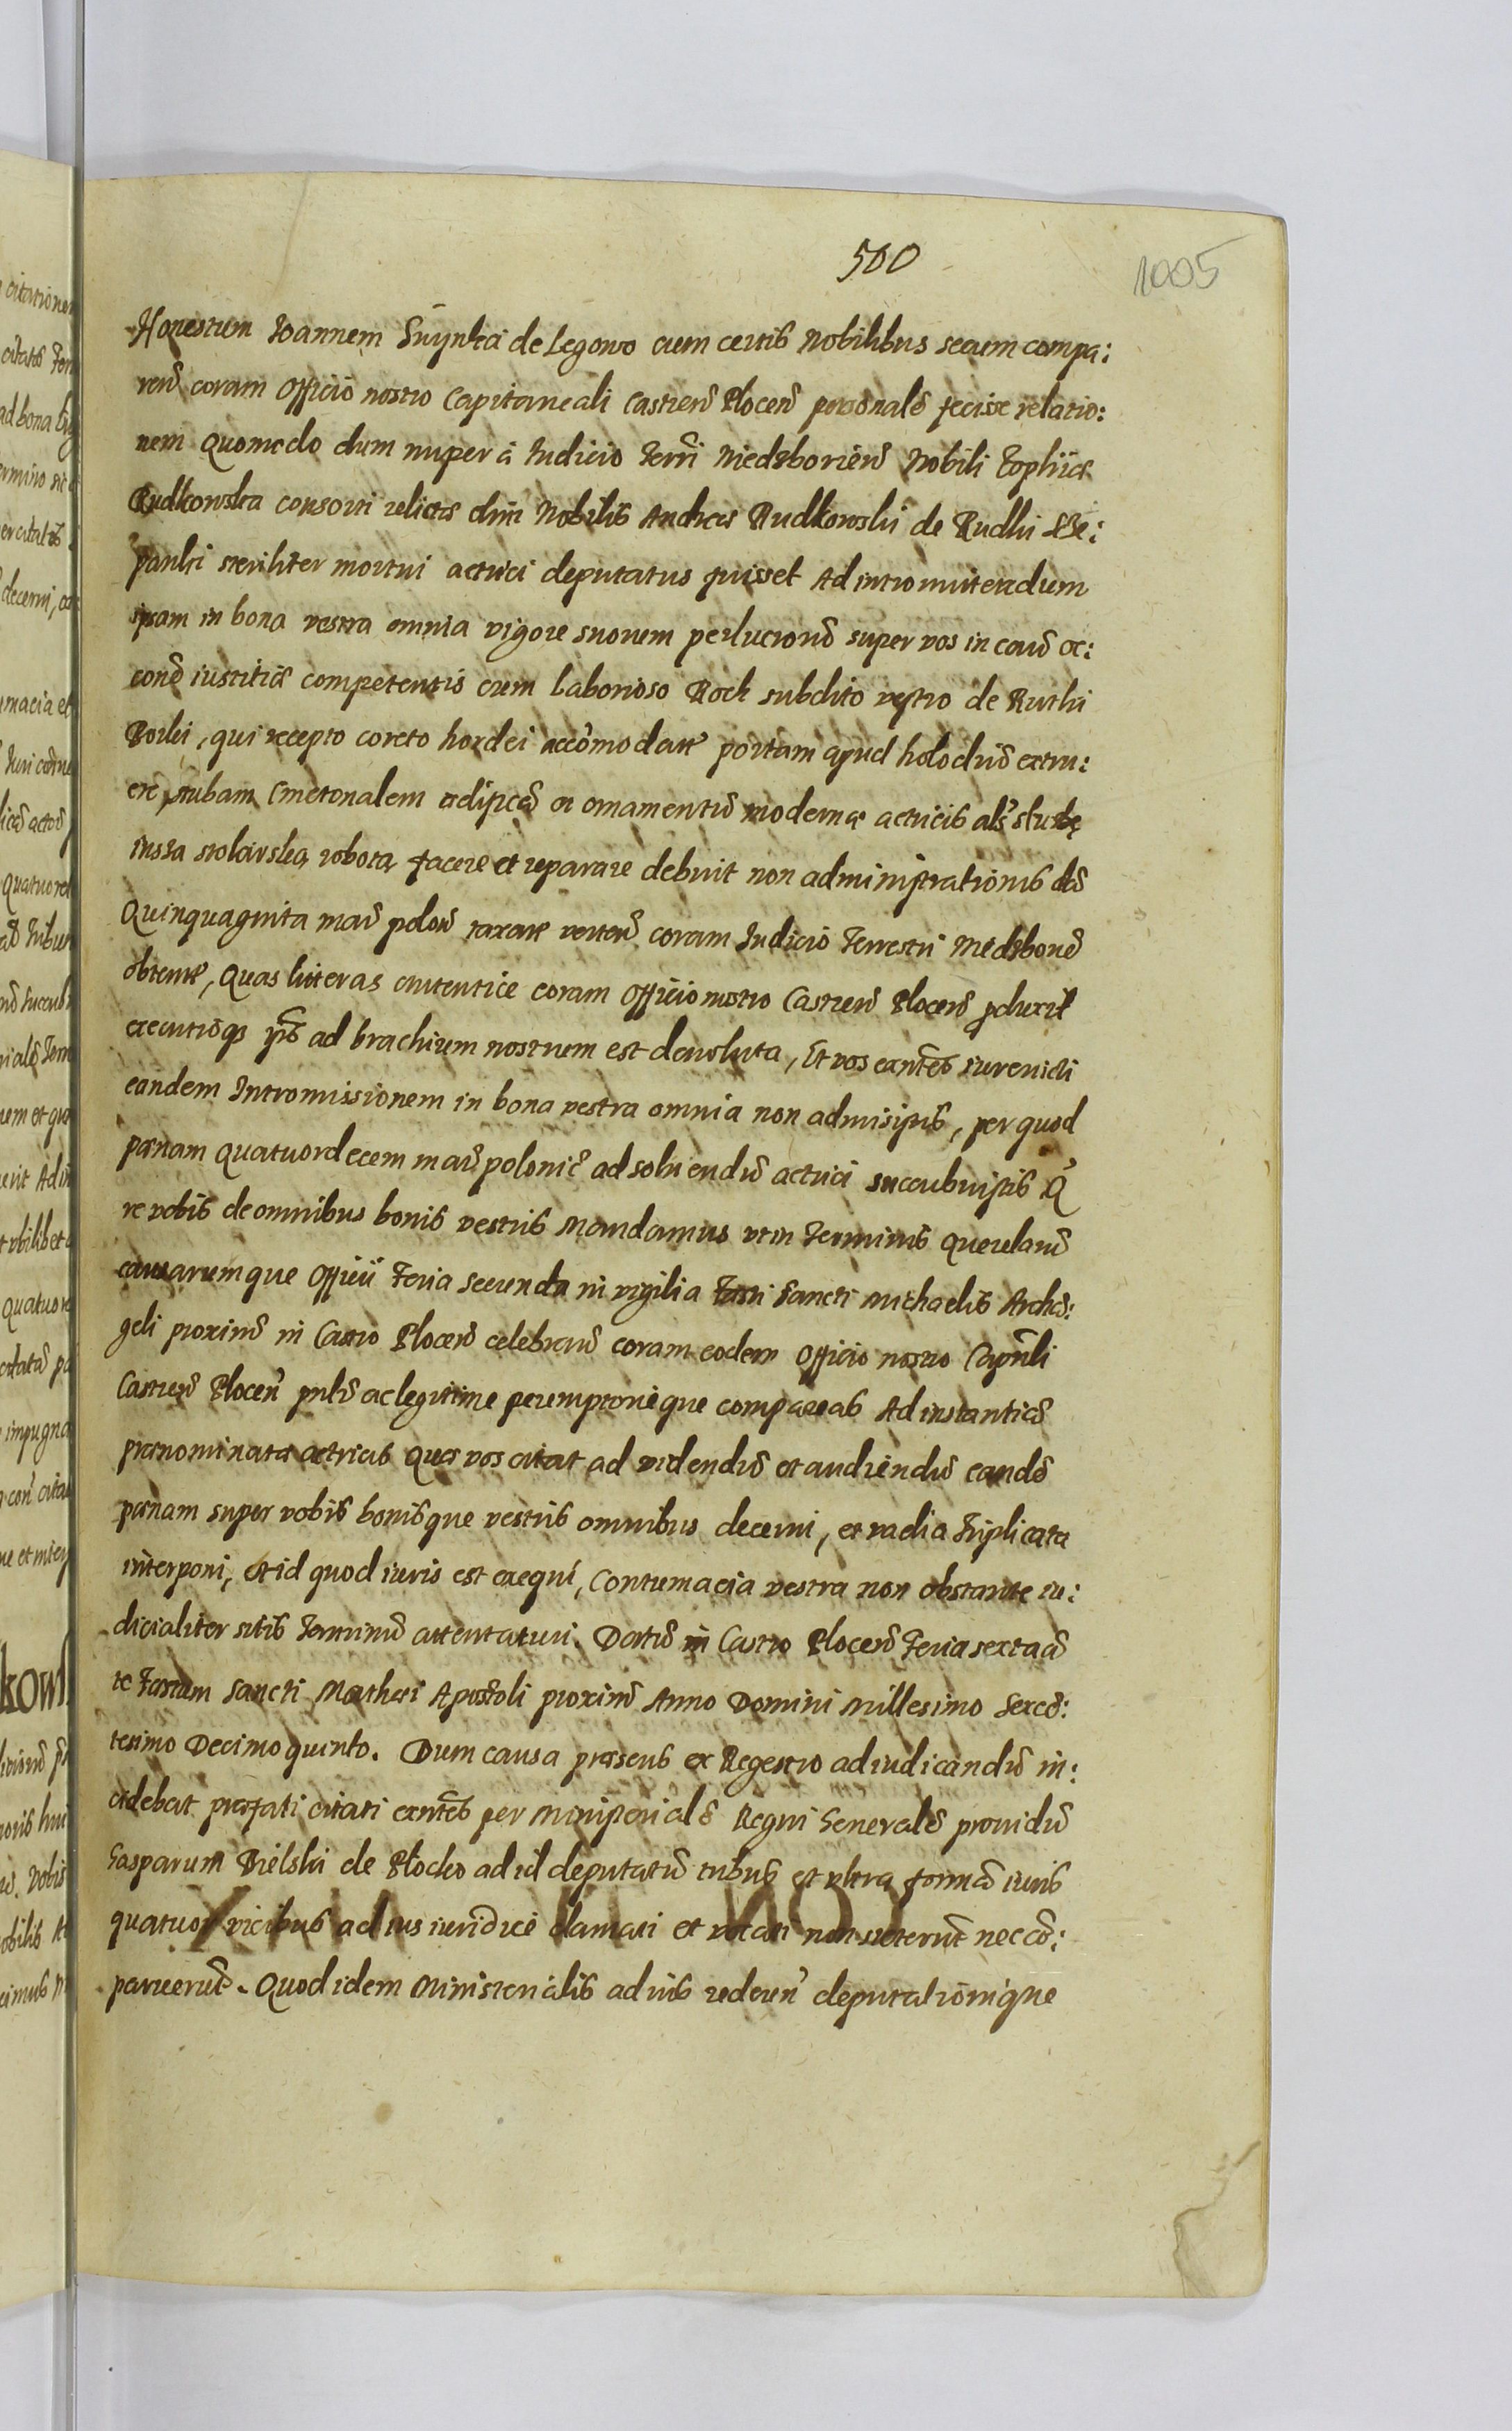 500
1005
Honestum Ioannem Suynka de Legowo cum certis Nobilibus secum compa:
ren̄ coram Officio nostro Capitaneali Castren̄ Plocen̄ personalē fecisse relatio:
nem Quomodo dum nuper á Iudicio Terri Niedzborien̄ Nobili Zophiæ
Rudkowska consorti relictæ olim Nobilis Andreæ Rudkowski de Rudki
steriliter mortui actrici deputatus fuisset Ad intromittendum
ipsam in bona vestra omnia vigore super vos in
iustitiæ competentis cum laborioso Rock subdito vestro de Rutki
qui recepto coreto hordei accōmodatæ portam apud extru:
ere stubam Cmetonalem ædificā ornamentū modernæ actricis als stubę
stolarską robotą facere et reparare debuit non administrationis
Quinquaginta mar̄ polon̄ taxatæ verten̄ coram Iudicio Terrestri Niedzborie̅
obtentæ, Quas literas autentice coram Officio nostro Castren̄ Plocen̄ ꝓduxit
executioqꝫ ad brachium nostrum est devoluta, Et vos iurevicti
eandem Intromissionem in bona vestra omnia non admisistis, per quod
pænam Quatuordecem mar̄ polonic̄ ad soluendū actrici succubuistis Q̄
re vobis de omnibus bonis vestris Mandamus vt in Terminis Querelarū
causarumque Officii Feria secunda in vigilia Festi Sancti Michaelis Archā:
geli proximē in Castro Plocen̄ celebran̄ coram eodem Officio nostro Capnli
Castren̄ Plocen̄ ac legitime peremptorieque compareas Ad instantiā
prænominatæ actricis Quæ vos citat ad videndū et audiendū eandē
pænam super vobis bonisque vestris omnibus decerni, et vadia triplicata
interponi, et id quod iuris est exequi, Contumacia vestra non obstante iu:
dicialiter sitis Terminū attentaturi. Datū in Castro Plocen̄ Feria sexta ā
te Festum Sancti Mathei Apostoli proximē Anno Domini Millesimo Sexcē:
tesimo Decimo quinto. Dum causa præsens ex Regestro ad iudicandū in:
cidebat præfati citati per Ministerialē Regni Generalē providū
Gasparum Bielski de Plocko ad id deputatū tribus et vltra formā iuris
quatuor vicibus ad ius iuridicé clamati et vocati non steterūt nec cō:
paruerūt. Quod idem Ministerialis ad vis deputationique